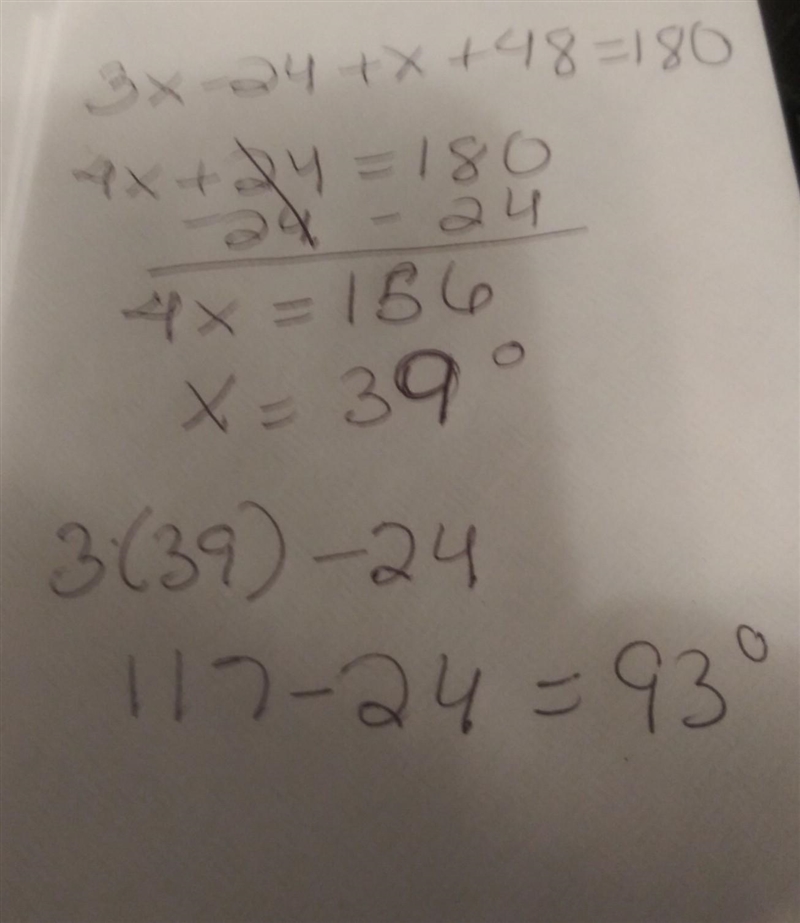 3x-24+x+48=180
4x+24=180
-24 -24
4x=156
x=39°
3·(39)-24
117-24=93°